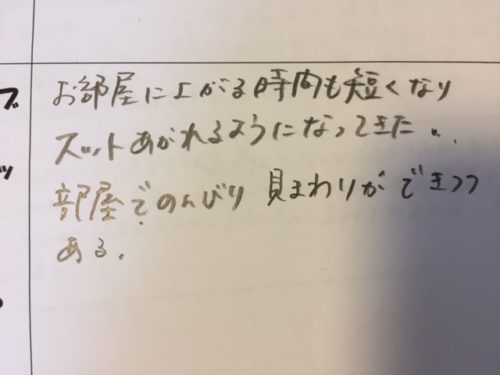 お部屋に上がる時間も短くなり
スットあがれるようになってきた。
部屋でのんびり 見まわりができつつ
ある。
ブ
ッ